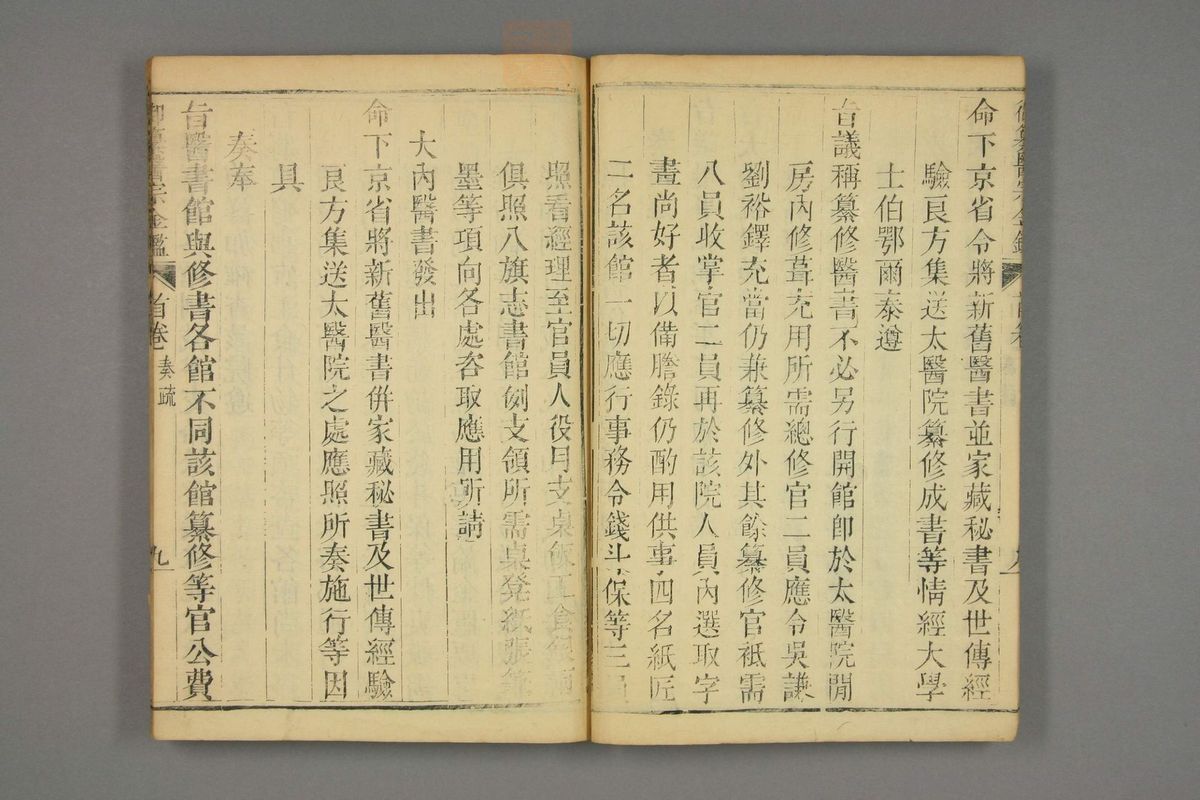 命下京省令將新舊醫書並家藏秘書及世傳經
驗良方集送太醫院纂修成書等情經大學
士伯鄂爾泰遵
旨議稱纂修醫書不必另行開館卽於太醫院閒
房內修葺充用所需總修官二員應令吳謙
劉裕鐸充當仍兼纂修外其餘纂修官祗需
八員收掌官二員再於該院人員內選取字
畫尚好者以備謄錄仍酌用供事四名紙匠
二名該館一切應行事務令錢斗保等三員
照看經理至官員人役月支桌飯工食飯
俱照八旗志書館例支領所需桌凳紙張筆
墨等項向各處咨取應用所請
大內醫書發出
命下京省將新舊醫書倂家藏秘書及世傳經驗
良方集送太醫院之處應照所奏施行等因
具
奏奉
旨醫書館與修書各館不同該館纂修等官公費
御纂醫宗金鑑 首卷 奏疏 九